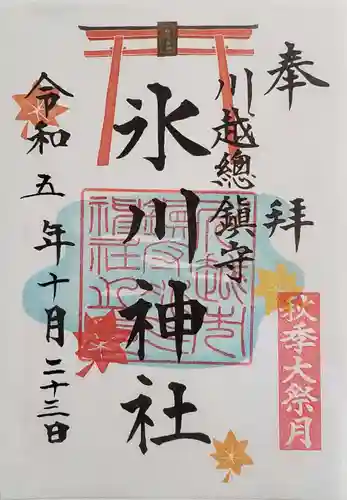 奉拜
川越總鎮守
氷川神社
令和五年十月二十三日
秋季大祭月